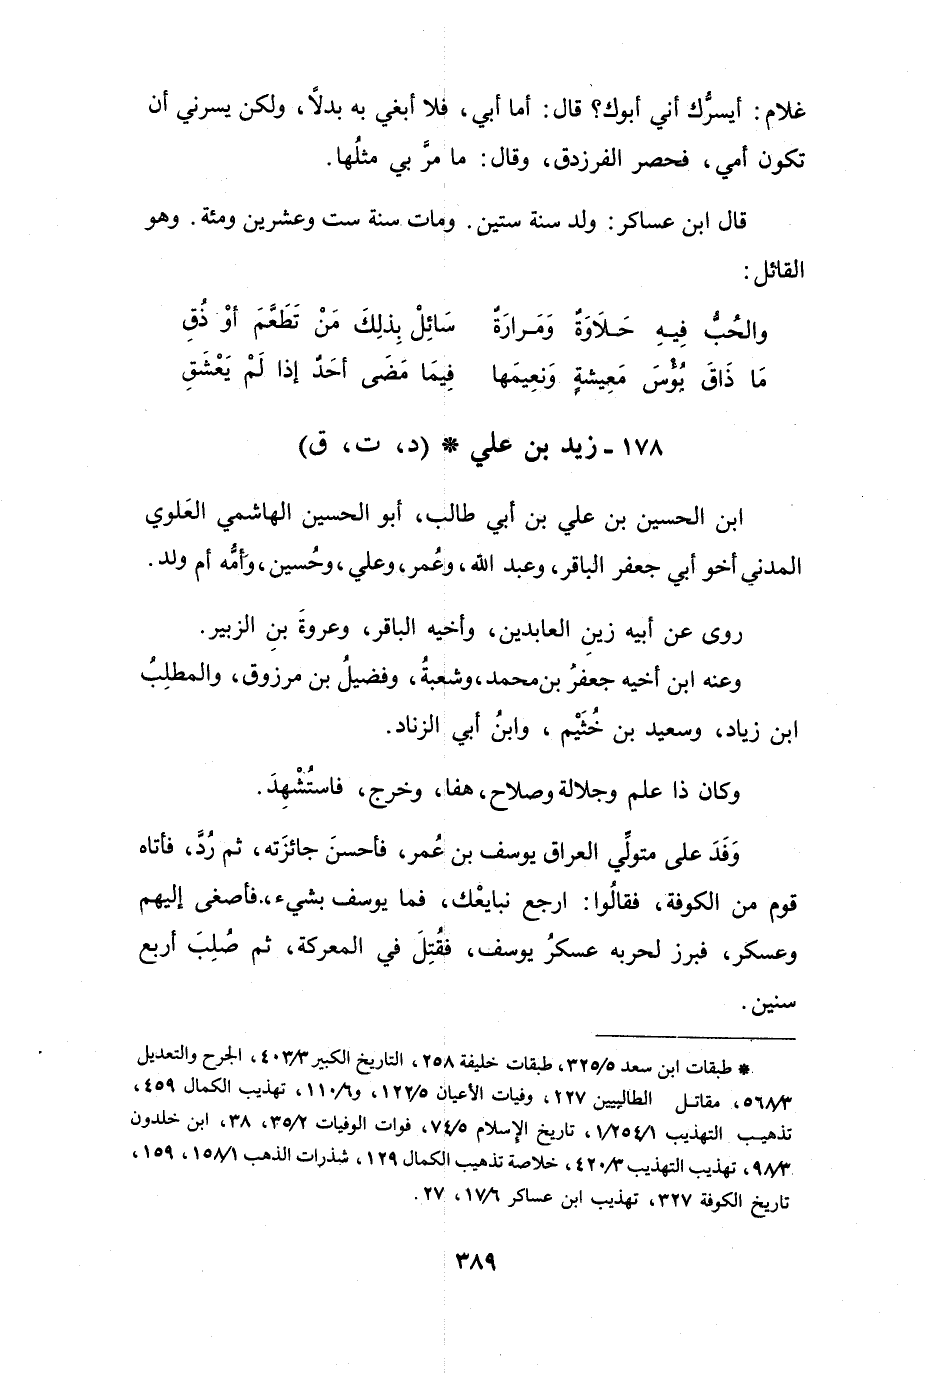 غلام: أيسرُّك أني أبوك؟ قال: أما أبي، فلا أبغي به بدلاً، ولكن يسرني أن
تكون أمي، فحصر الفرزدق، وقال: ما مرَّ بي مثلُها.
قال ابن عساكر: ولد سنة ستين. ومات سنة ست وعشرين ومئة. وهو
القائل:
والحُبُّ فِيهِ حَلَاوَةٌ وَمَرارَةٌ سَائِلْ بِذلِكَ مَنْ تَطَعَّمَ أوْ ذُقِ
مَا ذَاقَ بُؤْسَ مَعِيشةٍ وَنَعِيمَها فِيمَا مَضَى أحَدٌ إذا لَمْ يَعْشَقِ
١٧٨ - زيد بن علي * (د، ت، ق)
ابن الحسين بن علي بن أبي طالب، أبو الحسين الهاشمي العَلوي
المدني أخو أبي جعفر الباقر، وعبد الله، وعُمر، وعلي، وحُسين، وأمُّه أم ولد.
روى عن أبيه زينِ العابدين، وأخيه الباقر، وعروةَ بنِ الزبير.
وعنه ابن أخيه جعفرُ بن محمد، وشعبةُ، وفضيلُ بن مرزوق، والمطلِبُ
ابن زياد، وسعيد بن خُثَيْم، وابنُ أبي الزناد.
وكان ذا علم وجلالة وصلاح، هفا، وخرج، فاستُشْهِدَ.
وَفَدَ على متولِّي العراق يوسف بن عُمر، فأحسنَ جائزَته، ثم رُدَّ، فأتاه
قوم من الكوفة، فقالُوا: ارجع نبايعْك، فما يوسف بشيء، فأصغى إليهم
وعسكر، فبرز لحربه عسكرُ يوسف، فقُتِلَ في المعركة، ثم صُلِبَ أربع
سنين.
* طبقات ابن سعد ٣٢٥/٥، طبقات خليفة ٢٥٨، التاريخ الكبير ٤٠٣/٣، الجرح والتعديل
٥٦٨/٣، مقاتل الطالبيين ١٢٧، وفيات الأعيان ١٢٢/٥، و١١٠/٦، تهذيب الكمال ٤٥٩،
تذهيب التهذيب ١/٢٥٤/١، تاريخ الإسلام ٧٤/٥، فوات الوفيات ٣٥/٢، ٣٨، ابن خلدون
٩٨/٣، تهذيب التهذيب ٤٢٠/٣، خلاصة تذهيب الكمال ١٢٩، شذرات الذهب ١٥٨/١، ١٥٩،
تاريخ الكوفة ٣٢٧، تهذيب ابن عساكر ١٧/٦، ٢٧.
٣٨٩